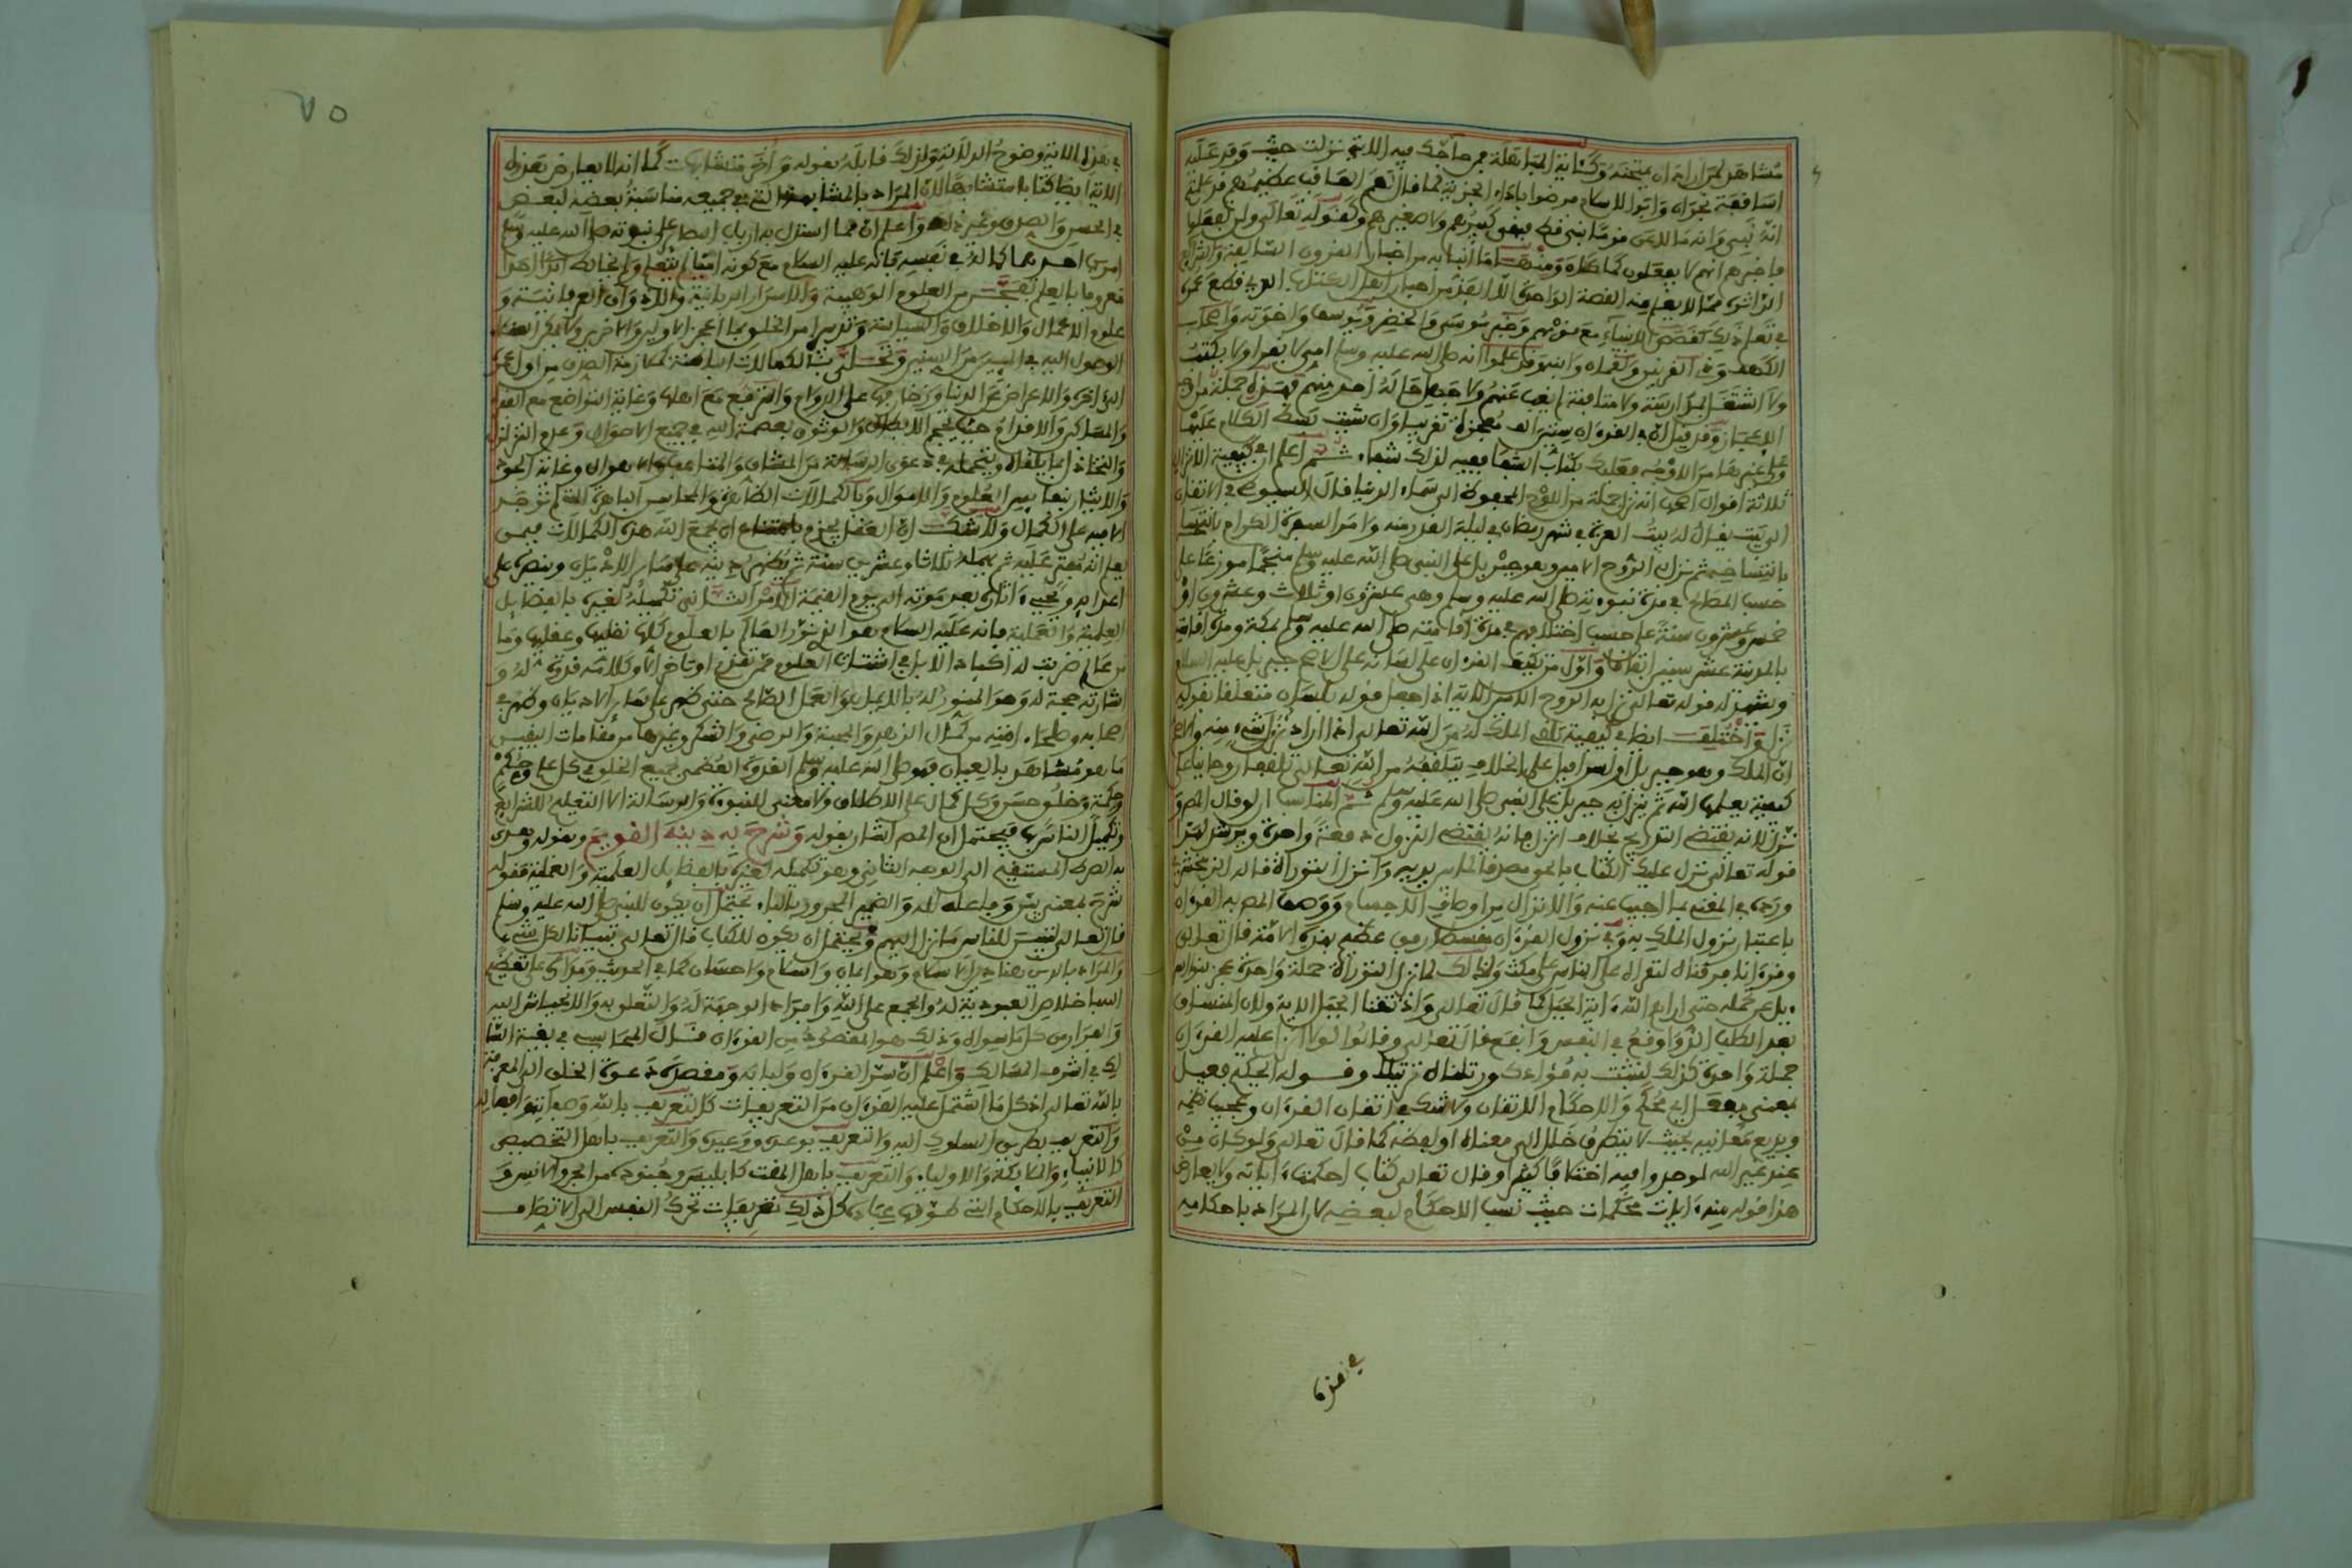 مشاهد لمن أراد أن يمتحنه وكآية المباهلة فمن حاجك فيه الآية نزلت حيث وفد عليه
أساقفة نجران وأبوا الإسلام
أنه نبي وأنه ما لاعن قوما نبي قط فبقي كبيرهم ولا صغيرهم وكقوله تعالى ولن تفعلوا
فأخبرهم أنهم لا يفعلون كما ومنها ما أنبأ به من أخبار القرون السالفة والشرائع
الداثرة مما لا يعلم منه القصة الواحدة إلا الفذ من أحبار أهل الكتاب الذي قطع عمره
في تعلم ذلك كقصص الأنبياء مع قومهم وخبر موسى والخضر ويوسف وإخوته وأصحاب
الكهف وذي القرنين ولقمان وابنه وقد علموا أنه صلى الله عليه وسلم أمي لا يقرأ ولا يكتب
ولا اشتغل بمدارسة ولا مثافنة لم يغب عنهم ولا جهل حاله أحد منهم فهذه جملة من
الإعجاز وقد قيل إن في القرآن ستين ألف معجزة تقريبا وإن شئت بسط الكلام عليها
وعلى غيرها من الأوجه فعليك بكتاب الشفا ففيه لذلك شفاء ثم اعلم أن في كيفية الإنزال
ثلاثة أقوال أصحها أنه نزل جملة من اللوح المحفوظ إلى سماء الدنيا قال السيوطي في الإتقان
إلى بيت يقال له بيت العزة في شهر رمضان في ليلة القدر منه وأمر السفرة الكرام بانتساخه
بانتساخه ثم نزل به الروح الأمين وهو جبريل على النبي صلى الله عليه وسلم منجما موزعا على
حسب المصالح في مدة نبوءته صلى الله عليه وسلم وهي عشرون أو ثلاث وعشرون أو
خمس وعشرون سنة على حسب اختلافهم في مدة إقامته صلى الله عليه وسلم بمكة ومدة إقامته
بالمدينة عشر سنين اتفاقا وأول من تكلم بالقرآن على لسانه على الأصح جبريل عليه السلام
ويشهد له قوله تعالى نزل به الروح الأمين الآية إذا جعل قوله بلسان متعلقا بقوله
نزل واختلف أيضا في كيفية تلقي الملك له من الله تعالى إذا أراد نزول شيء منه والأصح
أن الملك وهو جبريل أو إسرافيل على الخلاف يتلقفه من الله تعالى تلقفا روحانيا على
كيفية يعلمها الله ثم ينزل به جبريل على النبي صلى الله عليه وسلم ثم المناسب لو قال المص
نزل لأنه يقتضي التدريج بخلاف أنزل فإنه يقتضي النزول دفعة واحدة ويرشد لهذا
قوله تعالى نزل عليك الكتاب بالحق مصدقا لما بين يديه وأنزل التوراة قاله الزمخشري
ورده في المغني بما أجيب عنه والإنزال من أوصاف الأجسام ووصف المص به القرآن
باعتبار نزول الملك به وفي نزول القرآن مقسطا رفق عظيم بهذه الأمة قال تعالى
وقرآنا فرقناه لتقرأه على الناس على مكث ولذلك لما نزل التوراة جملة واحدة عجز بنو إسرا
ءيل عن حمله حتى أراهم الله آية الجبل كما قال تعالى وإذ نتقنا الجبل الآية ولأن المنساق
بعد الطلب ألذ وأوقع في النفس وأنفع قال تعالى وقالوا لولا أنزل عليه القرآن
جملة واحدة كذلك لنثبت به فؤادك ورتلناه ترتيلا وقوله الحكيم فعيل
بمعنى مفعل أي محكم والإحكام الإتقان ولا شك في إتقان القرآن وعجيب نظمه
وبديع معانيه بحيث لا يتطرق خلل إلى معناه أو لفظه كما قال تعالى ولو كان من
عند غير الله لوجدوا فيه اختلافا كثيرا وقال تعالى كتاب أحكمت آياته ولا يعارض
هذا قوله منه آيات محكمات حيث نسب الإحكام لبعضه لأن المراد بإحكامه
في هذه
٧٥
في هذه الآية وضوح الدلالة ولذلك قابله بقوله وأخر متشابهات كما أنه لا يعارض هذه
الآية أيضا كتابا متشابها لأن المراد بالمشابهة التي في جميعه مناسبة بعضه لبعض
في الحسن والصدق وغير ذلك واعلم أن مما استدل به أرباب البصائر على نبوته صلى الله عليه وسلم
أمرين أحدهما كماله في نفسه فإنه عليه السلام مع كونه أميا لم يتعلم ولم يخالط أبدا أحدا
معروفا بالعلم تفجر من العلوم الوهبية والأسرار الربانية والأذواق العرفانية و
علوم الأعمال والأخلاق والسياسة وتدبير أمر الخلق بما أعجز الأولين والآخرين
الوصول إليه في اليسير من السنين وتحلى بالكمالات الباهرة كملازمة الصدق من أول عمره
إلى آخره والإعراض عن الدنيا وزخارفها على الدوام والترفع مع أهلها وغاية التواضع مع الفقراء
والمساكين والإقدام حيث يحجم الأبطال والوثوق بعصمة الله في جميع الأحوال وعدم التزلزل
والتخاذل فيما يلقاه ويتحمله في دعوى الرسالة من المشاق والمتاعب والأهوال وغاية الجود
والإيثار بنفائس العلوم والأموال وبالكمالات الظاهرة والمحاسن الباهرة التي لم توجد
إلا فيه على الكمال ولا شك أن العقل يجزم بامتناع أن يجمع الله هذه الكمالات فيمن
يعلم أنه يفتري عليه ثم يمهله ثلاثا وعشرين سنة ثم يظهر دينه على سائر الأديان وينصره على
أعدائه ويحيي آثاره بعد موته إلى يوم القيامة الأمر الثاني تكميله لغيره بالفضائل
العلمية والعملية فإنه عليه السلام هو الذي نور العالم بالعلوم كلها نقليها وعقليها وما
من عالم ضربت له أكباد الإبل في اشتتات العلوم ممن تقدم أو تأخر إلا وكلامه قدوة له و
إشارته حجة له وهو المنور له بالإيمان والعمل الصالح حتى ظهر على سائر الأديان وظهر في
أصحابه وصلحاء أمته من كمال الزهد والمحبة والرضى والشكر وغيرها من مقامات اليقين
ما هو مشاهد بالعيان فهو صلى الله عليه وسلم القدوة العظمى لجميع الخلق في كل علم وحكم
وحكمة وخلق حسن وكل كمال على الإطلاق ولا معنى للنبوة والرسالة إلا التعليم للشرائع
وتكميل الناس فيحتمل أن المص أشار بقوله وشرح به دينه القويم وبقوله وهدى
به الصراط المستقيم إلى الوجه الثاني وهو تكميله لغيره بالفضائل العلمية والعملية فقوله
شرح بمعنى بين وفاعله لله والضمير المجرور بالباء يحتمل أن يكون للنبي صلى الله عليه وسلم
قال تعالى لتبين للناس ما نزل إليهم ويحتمل أن يكون للكتاب قال تعالى تبيانا لكل شيء
والمراد بالدين هنا دين الإسلام وهو إيمان وإسلام وإحسان كما في الحديث ومداره على تعظيم
الله بإخلاص العبودية له والجمع على الله وإفراد الوجهة له والتعلق به والانحياش إليه
والفرار من كل ما سواه وذلك هو المقصود من القرآن قال المحاسبي في بغية السا
لك في أشرف المسالك واعلم أن سر القرآن ولبابه ومقصده دعوة الخلق إلى المعرفة
بالله تعالى إذ كل ما اشتمل عليه القرآن من التعريفات كالتعريف بالله وصفاته وأفعاله
والتعريف بطريق السلوك إليه والتعريف بوعده ووعيده والتعريف بأهل التخصيص
كالأنبياء والملائكة والأولياء والتعريف بأهل المقت كإبليس وجنوده من الجن والإنس و
التعريف بالأحكام التي طوقها عباده كل ذلك تعريفات تحرك النفس إلى الاتصاف